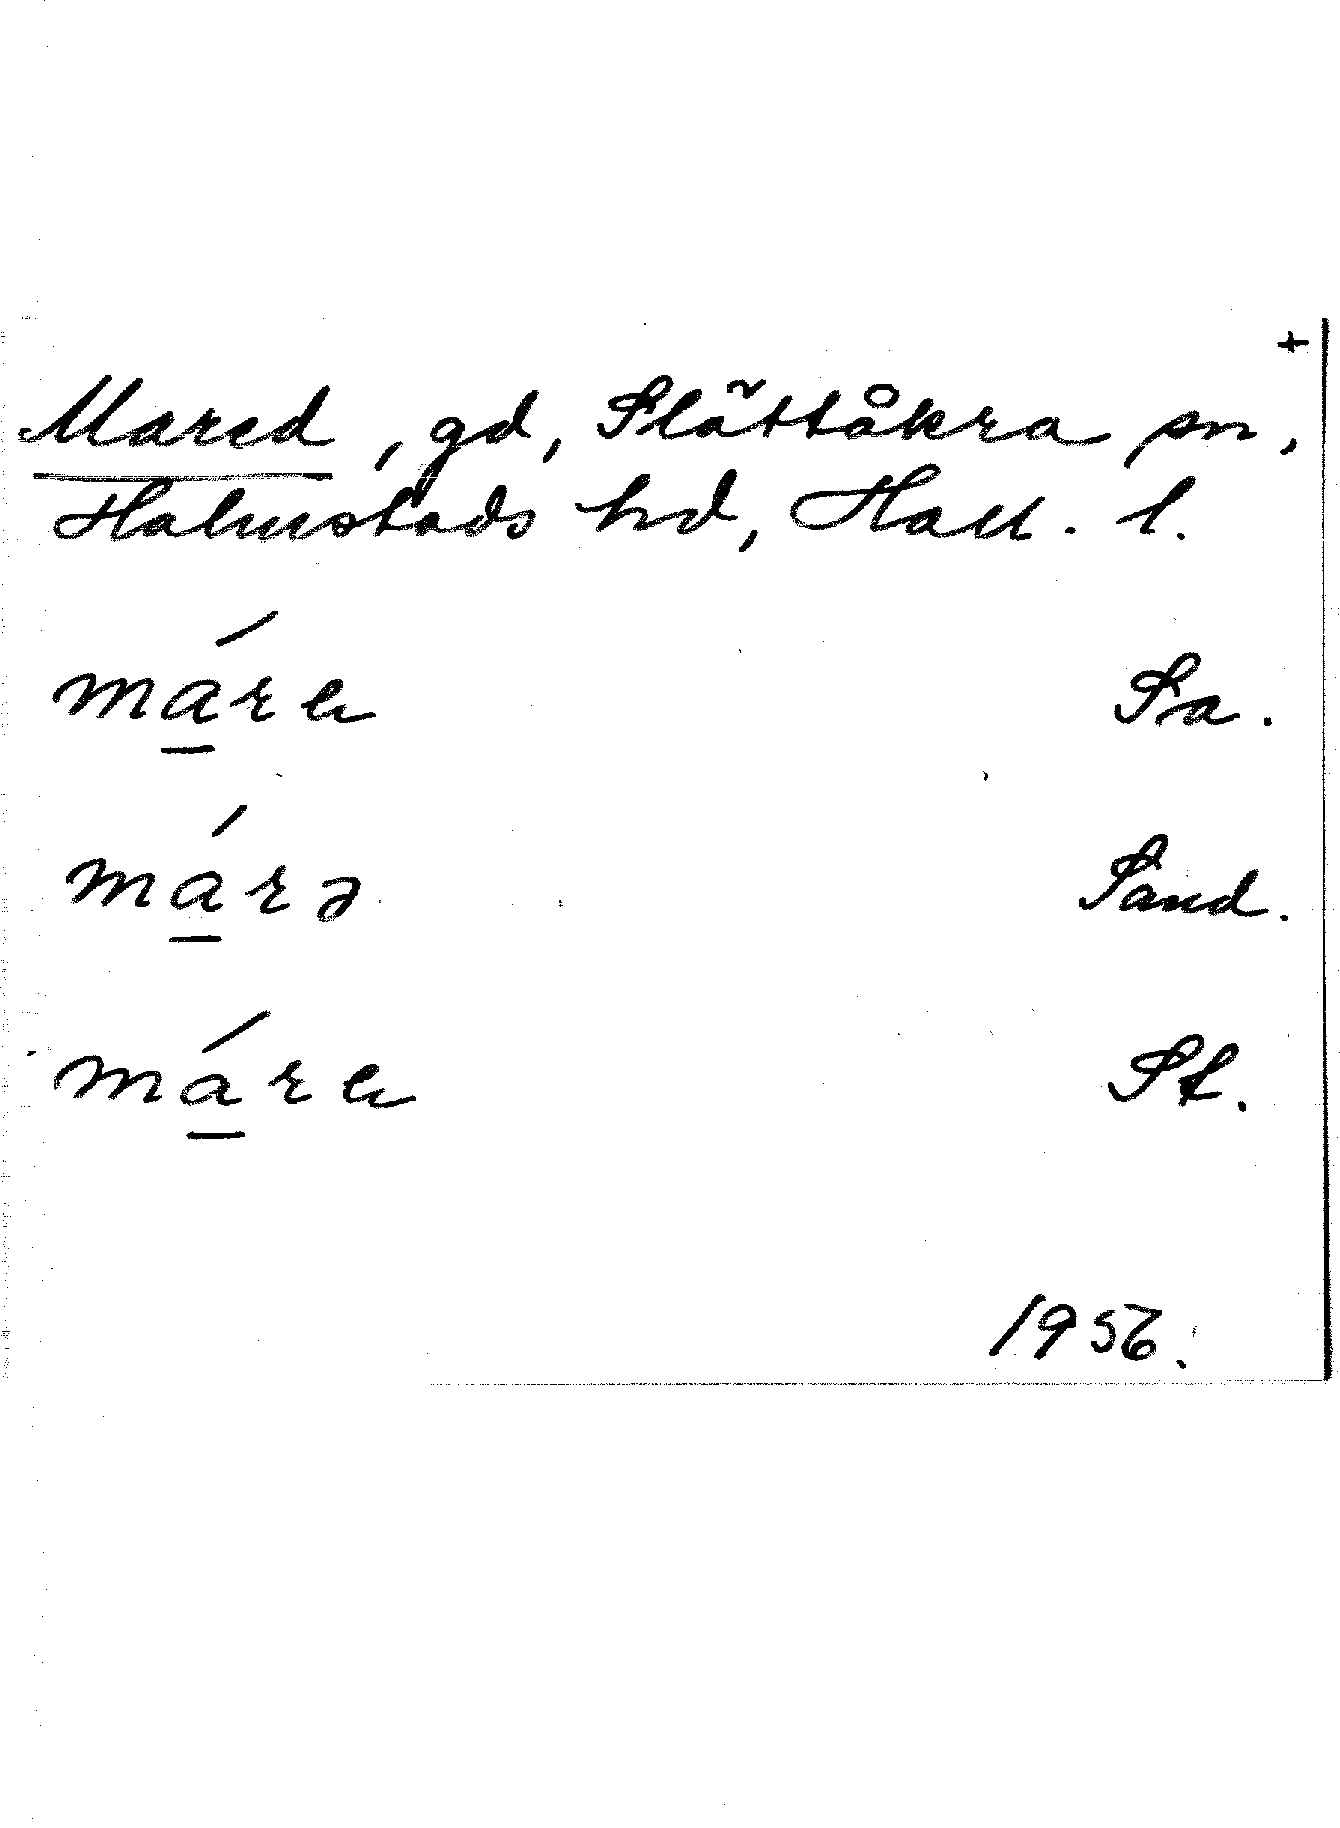 +
Mared, gd, Slättåkra sn,
Halmstads hd, Hall. l.
márе Sa.
márə Sand.
márе St.
1956.